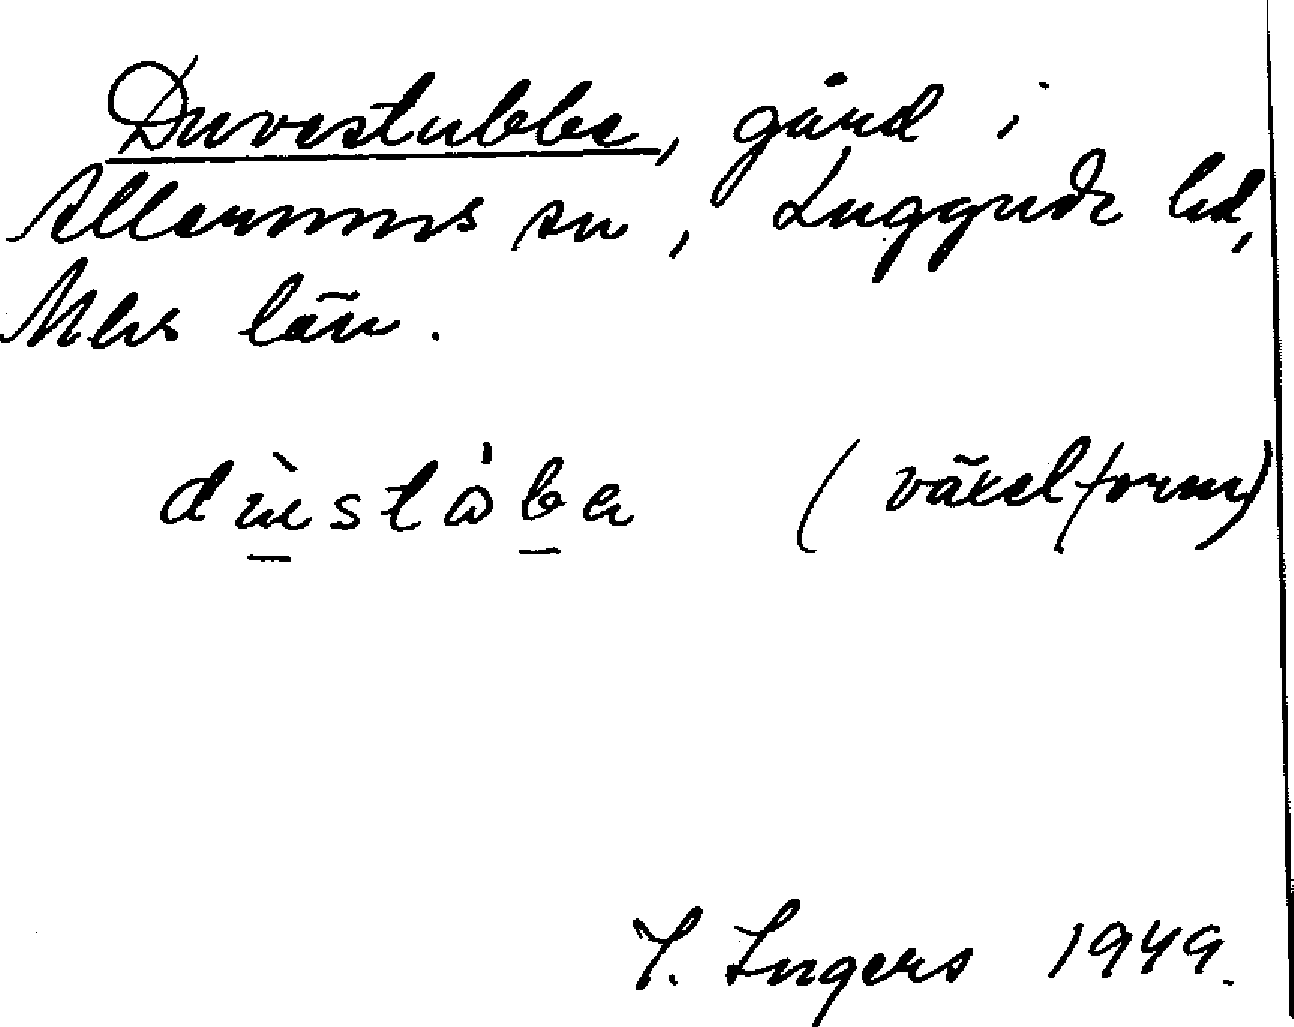 Duvestubbe, gård i
Allerums sn, Luggude hd,
Mhs län.
(växelform)
I. Ingers 1949.